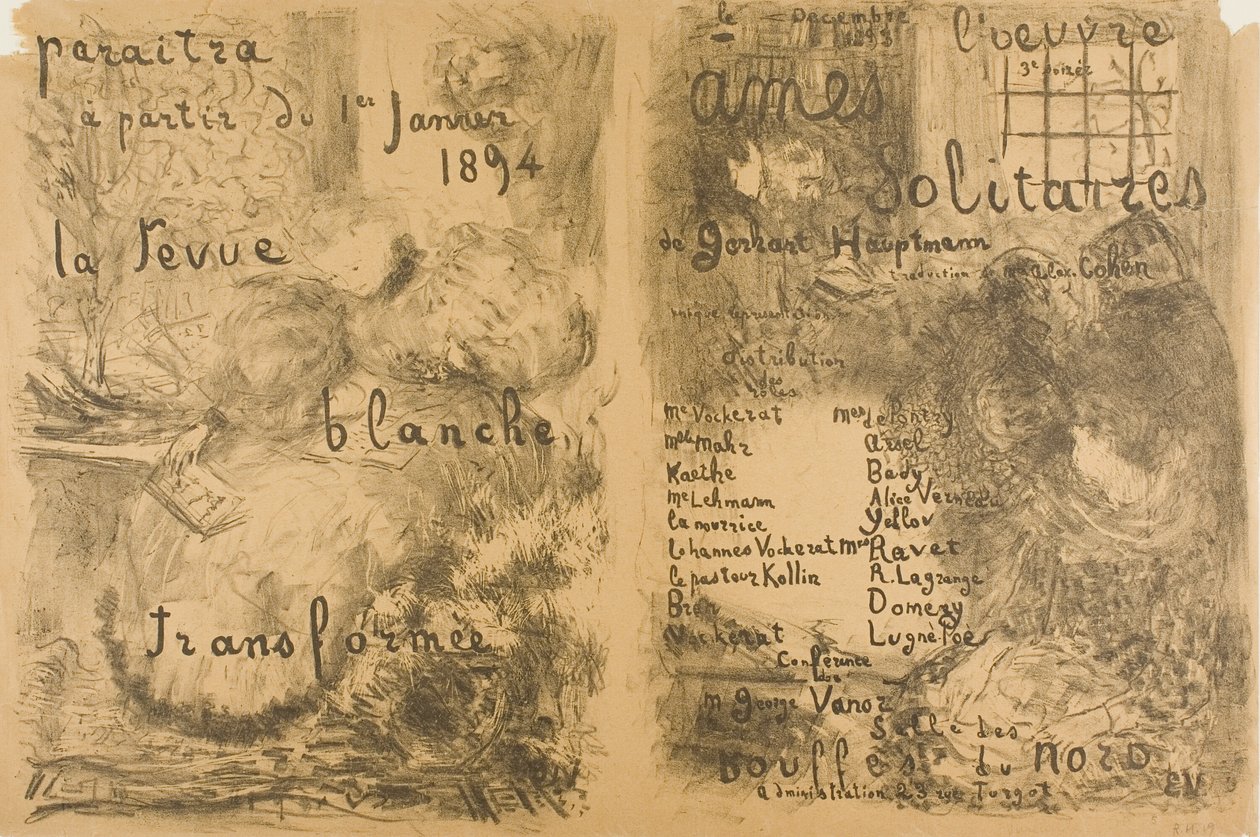 paraitra
à partir du 1er Janvier
1894
la revue
blanche
transformée
le Decembre
1893
l'oeuvre
3e soirée
ames
Solitaires
de Gerhart Hauptmann
traduction de Mr alex. Cohen
unique representation
distribution
des
roles
Me Vockerat Mes de Pontry
Mlle Mahr Arsel
Kaethe Bady
Me Lehmann Alice Verneau
la nourrice Yellov
Iohannes Vockerat Mrs Ravet
le pasteur Kollin R. Lagrange
Bran Domeny
Vockérat Lugné Poè
Conférence
de
M George Vanor
Salle des
bouffes du Nord
administration 23 rue Turgot
EV